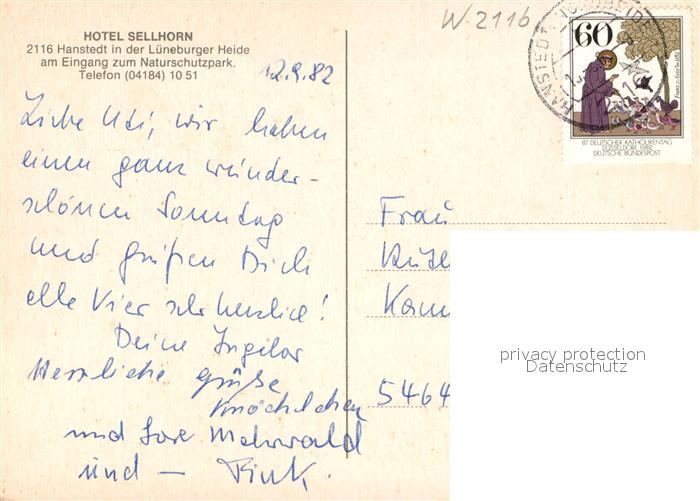 HOTEL SELLHORN
2116 Hanstedt in der Lüneburger Heide
am Eingang zum Naturschutzpark.
Telefon (04184) 10 51
W-2116
12.9.82
60
87. DEUTSCHER KATHOLIKENTAG
DÜSSELDORF 1982
DEUTSCHE BUNDESPOST
Liebe Udi, wir haben
einen ganz wunder-
schönen Sonntag
und grüßen Dich
alle Vier sehr herzlich!
Deine Ingelor
Herzliche Grüße
und Lore Mehrwald
und —
Frau
5464
privacy protection
Datenschutz